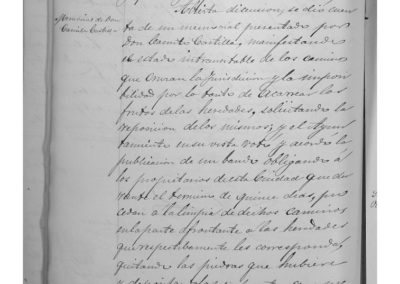 Abierta discusion, se dió cuen
Memorias de Don
Camilo Castilla
ta de un memorial presentado por
Don Camilo Castilla, manifestando
el estado intransitable de los caminos
que cruzan la Jurisdicción y la impos
bilidad por lo tanto de acarrear los
frutos de las heredades, solicitando la
reposicion de los mismos; y el Ayun
tamiento en su vista votó y acordó la
publicacion de un bando obligando á
los propietarios de esta Ciudad que du
rante el termino de quince dias, pro
cedan á la limpia de dichos caminos
en la parte afrontante a las heredades
que respectibamente les corresponda,
quitando las piedras que hubiere